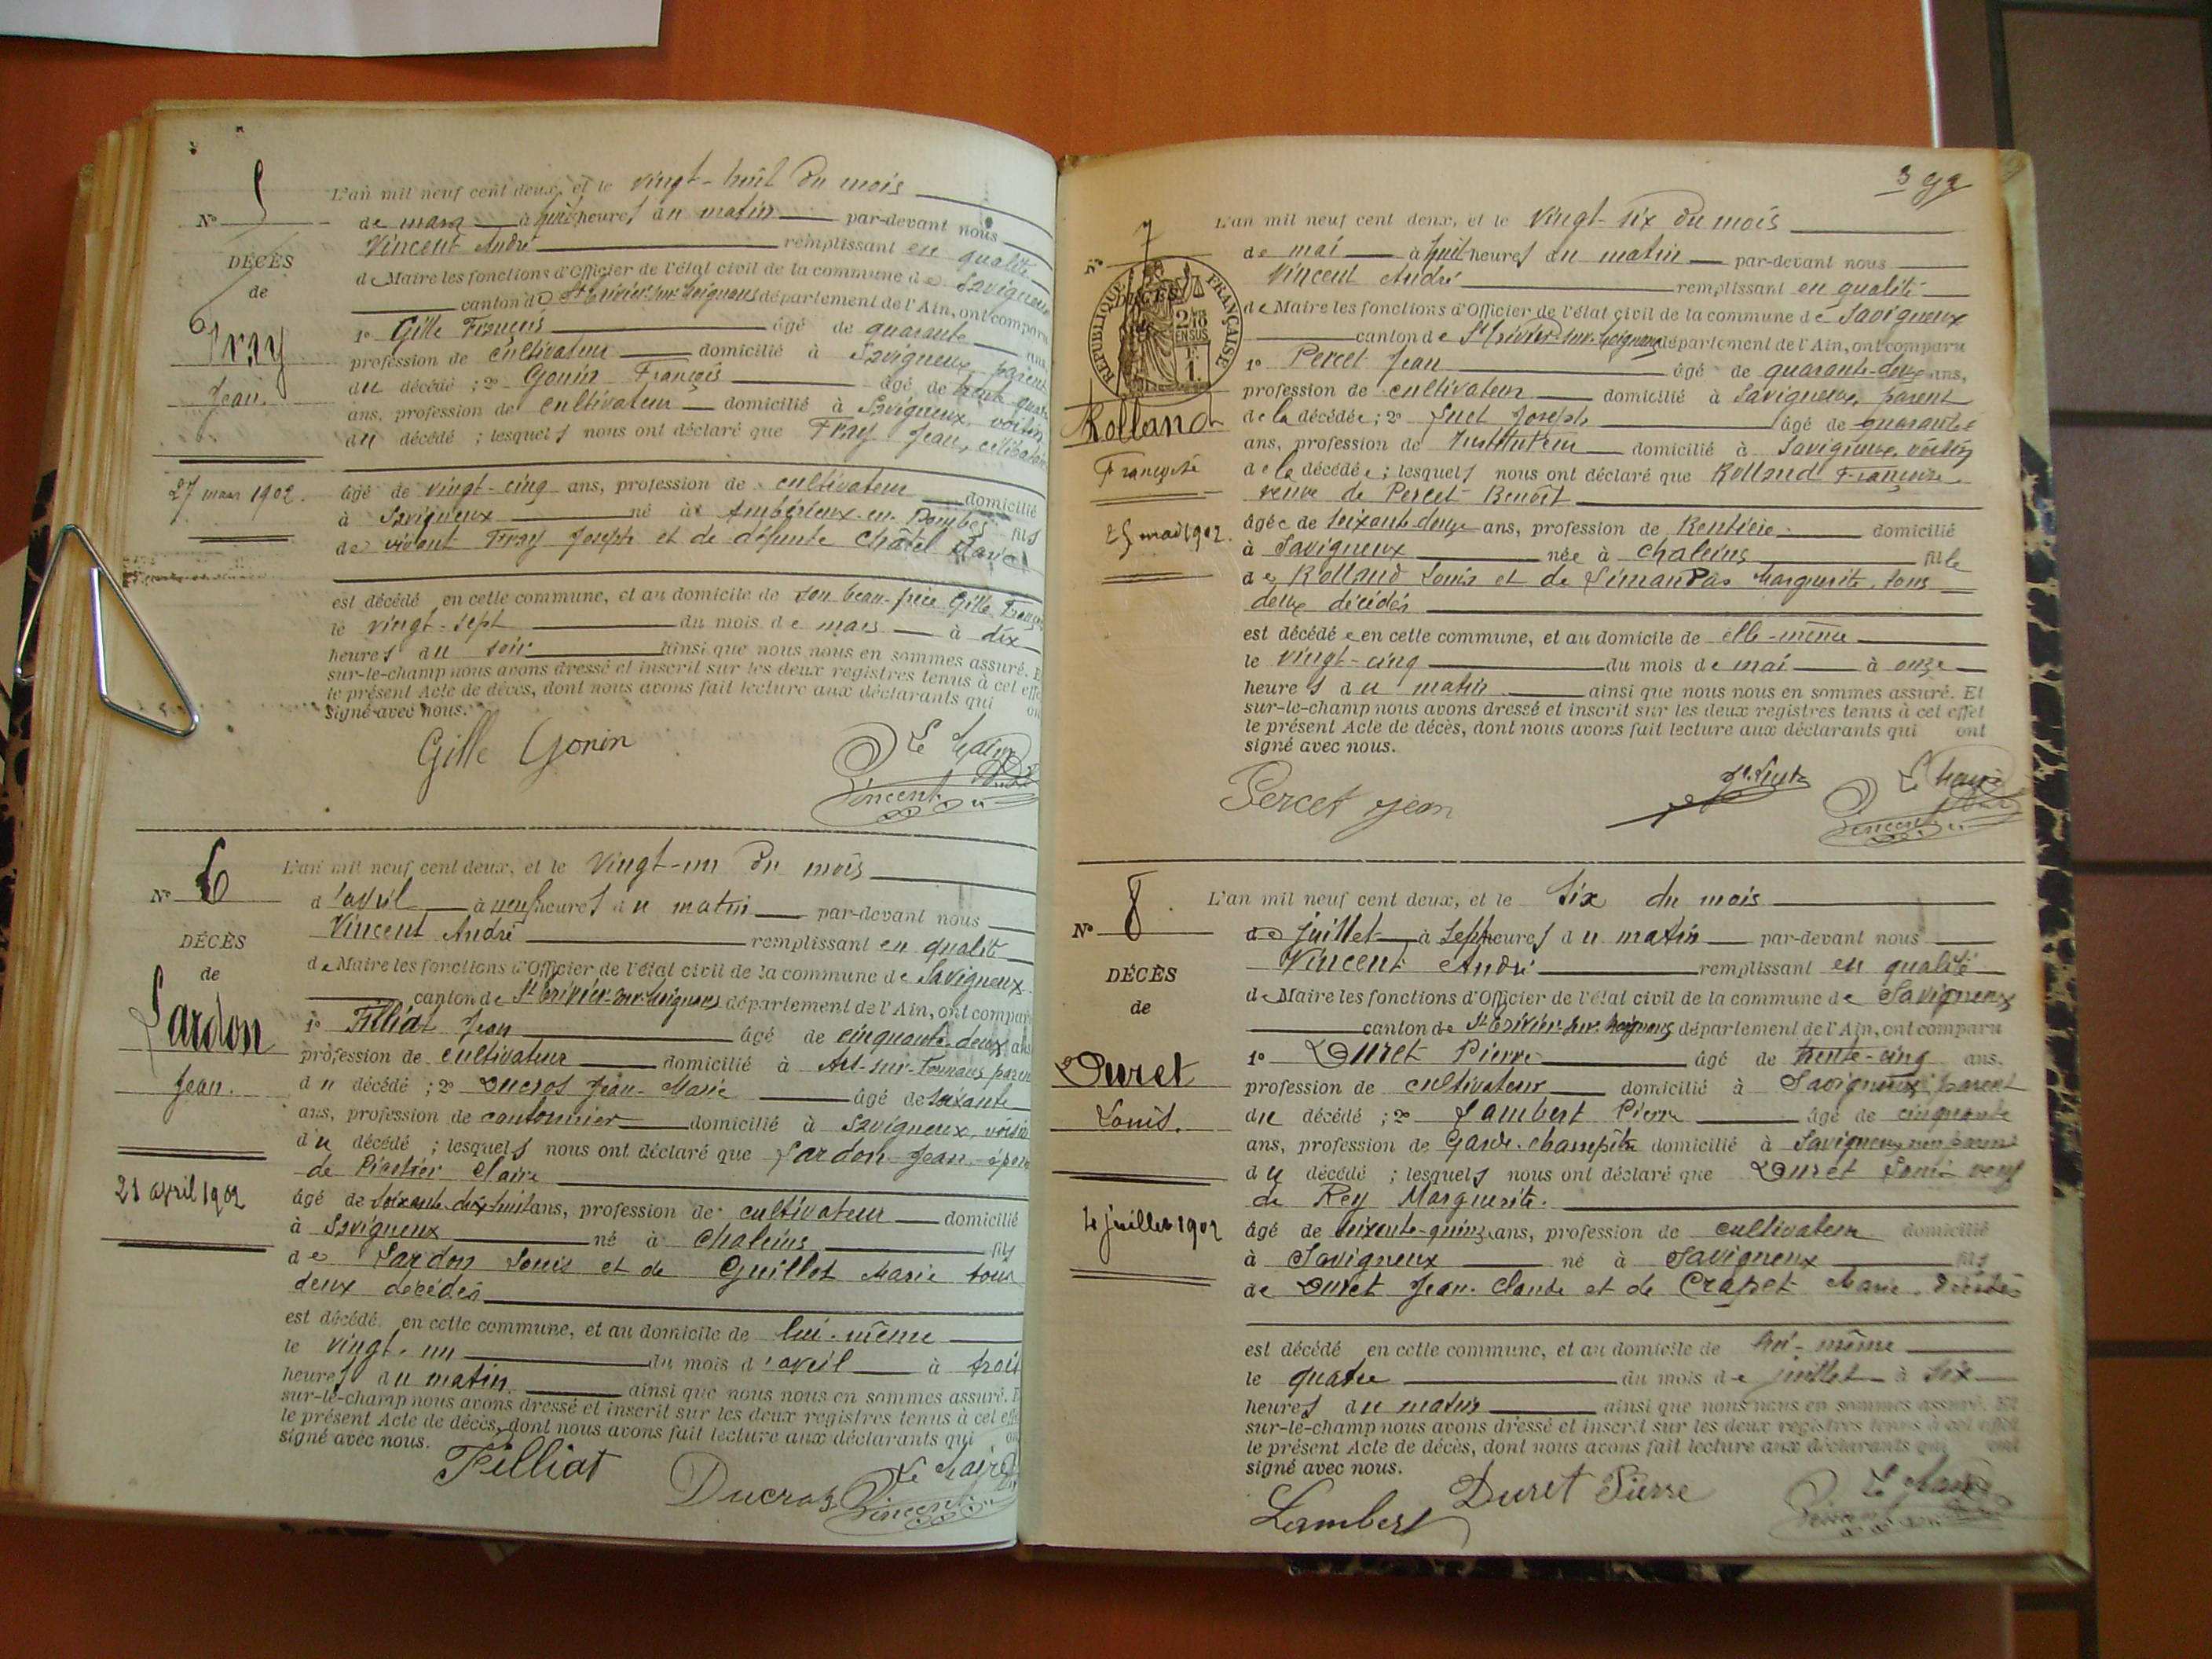 N° 5
DÉCÈS
de
Fray
Jean.
27 mars 1902.
L'an mil neuf cent deux, et le vingt-huit du mois
de mars à huit heures du matin par-devant nous
Vincent André remplissant en qualité
de Maire les fonctions d'Officier de l'état civil de la commune de Savigneux
canton de St Trivier-sur-Moignans département de l'Ain, ont comparu
1° Gille François âgé de quarante ans,
profession de cultivateur domicilié à Savigneux, parent
du décédé ; 2° Gonin François âgé de trente quatre
ans, profession de cultivateur domicilié à Savigneux, voisin
du décédé ; lesquels nous ont déclaré que Fray Jean, célibataire
âgé de vingt-cinq ans, profession de cultivateur domicilié
à Savigneux né à Ambérieux-en-Dombes fils
de vivant Fray Joseph et de défunte Chatel Marie
est décédé en cette commune, et au domicile de son beau-frère Gille François
le vingt-sept du mois de mars à dix
heures du soir ainsi que nous nous en sommes assuré. E
sur-le-champ nous avons dressé et inscrit sur les deux registres tenus à cet effe
le présent Acte de décès, dont nous avons fait lecture aux déclarants qui on
signé avec nous.
Gille Gonin
Le Maire
Vincent
N° 6
DÉCÈS
de
Sardon
Jean.
21 avril 1902
L'an mil neuf cent deux, et le vingt-un du mois
d'avril à neuf heures du matin par-devant nous
Vincent André remplissant en qualité
de Maire les fonctions d'Officier de l'état civil de la commune de Savigneux
canton de St Trivier-sur-Moignans département de l'Ain, ont compar
1° Filliat Jean âgé de cinquante-deux ans
profession de cultivateur domicilié à Ars-sur-Formans parent
du décédé ; 2° Ducros Jean-Marie âgé de soixante
ans, profession de cantonnier domicilié à Savigneux, voisin
du décédé ; lesquels nous ont déclaré que Sardon Jean, époux
de Claire
âgé de soixante-dix-huit ans, profession de cultivateur domicilié
à Savigneux né à Chaleins fils
de Sardon Louis et de Guillot Marie tous
deux décédés
est décédé en cette commune, et au domicile de lui-même
le vingt-un du mois d'avril à trois
heures du matin. ainsi que nous nous en sommes assuré. E
sur-le-champ nous avons dressé et inscrit sur les deux registres tenus à cet effe
le présent Acte de décès, dont nous avons fait lecture aux déclarants qui on
signé avec nous.
Filliat
Ducros
Le Maire
Vincent
392
N° 7
RÉPUBLIQUE FRANÇAISE
DÉCÈS
2/10 EN SUS
1F.
Rolland
Françoise
25 mai 1902.
L'an mil neuf cent deux, et le vingt-six du mois
de mai à huit heures du matin par-devant nous
Vincent André remplissant en qualité
de Maire les fonctions d'Officier de l'état civil de la commune de Savigneux
canton de St Trivier-sur-Moignans département de l'Ain, ont comparu
1° Percet Jean âgé de quarante-deux ans,
profession de cultivateur domicilié à Savigneux, parent
de la décédée ; 2° Suet Joseph âgé de quarante
ans, profession de Instituteur domicilié à Savigneux, voisin
de la décédée ; lesquels nous ont déclaré que Rolland Françoise
veuve de Percet Benoît
âgée de soixante-douze ans, profession de Rentière domicilié
à Savigneux née à Chaleins fille
de Rolland Louis et de Marguerite, tous
deux décédés
est décédée en cette commune, et au domicile de elle-même
le vingt-cinq du mois de mai à onze
heures du matin ainsi que nous nous en sommes assuré. Et
sur-le-champ nous avons dressé et inscrit sur les deux registres tenus à cet effet
le présent Acte de décès, dont nous avons fait lecture aux déclarants qui ont
signé avec nous.
Percet Jean
Le Maire
Vincent
N° 8
DÉCÈS
de
Duret
Louis.
4 juillet 1902
L'an mil neuf cent deux, et le six du mois
de juillet à sept heures du matin par-devant nous
Vincent André remplissant en qualité
de Maire les fonctions d'Officier de l'état civil de la commune de Savigneux
canton de St Trivier-sur-Moignans département de l'Ain, ont comparu
1° Duret Pierre âgé de trente-cinq ans.
profession de cultivateur domicilié à Savigneux, parent
du décédé ; 2° Lambert Pierre âgé de cinquante
ans, profession de Garde-champêtre domicilié à Savigneux non parent
du décédé ; lesquels nous ont déclaré que Duret Louis veuf
de Rey Marguerite.
âgé de soixante-quinze ans, profession de cultivateur domicilié
à Savigneux né à Savigneux fils
de Duret Jean-Claude et de Crapet Marie, décédés
est décédé en cette commune, et au domicile de lui-même
le quatre du mois de juillet à six
heures du matin ainsi que nous nous en sommes assuré. Et
sur-le-champ nous avons dressé et inscrit sur les deux registres tenus à cet effet
le présent Acte de décès, dont nous avons fait lecture aux déclarants qui ont
signé avec nous.
Lambert
Duret Pierre
Le Maire
Vincent